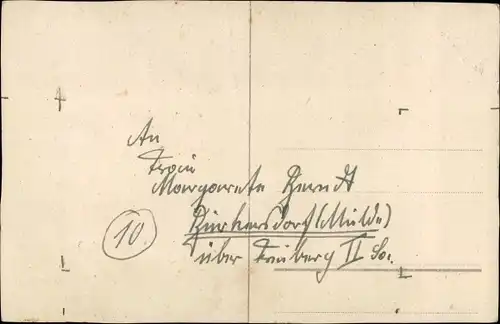 An
Frau
Margarete Berndt
Burkersdorf (Mulde)
über Freiberg II Sa.
10.